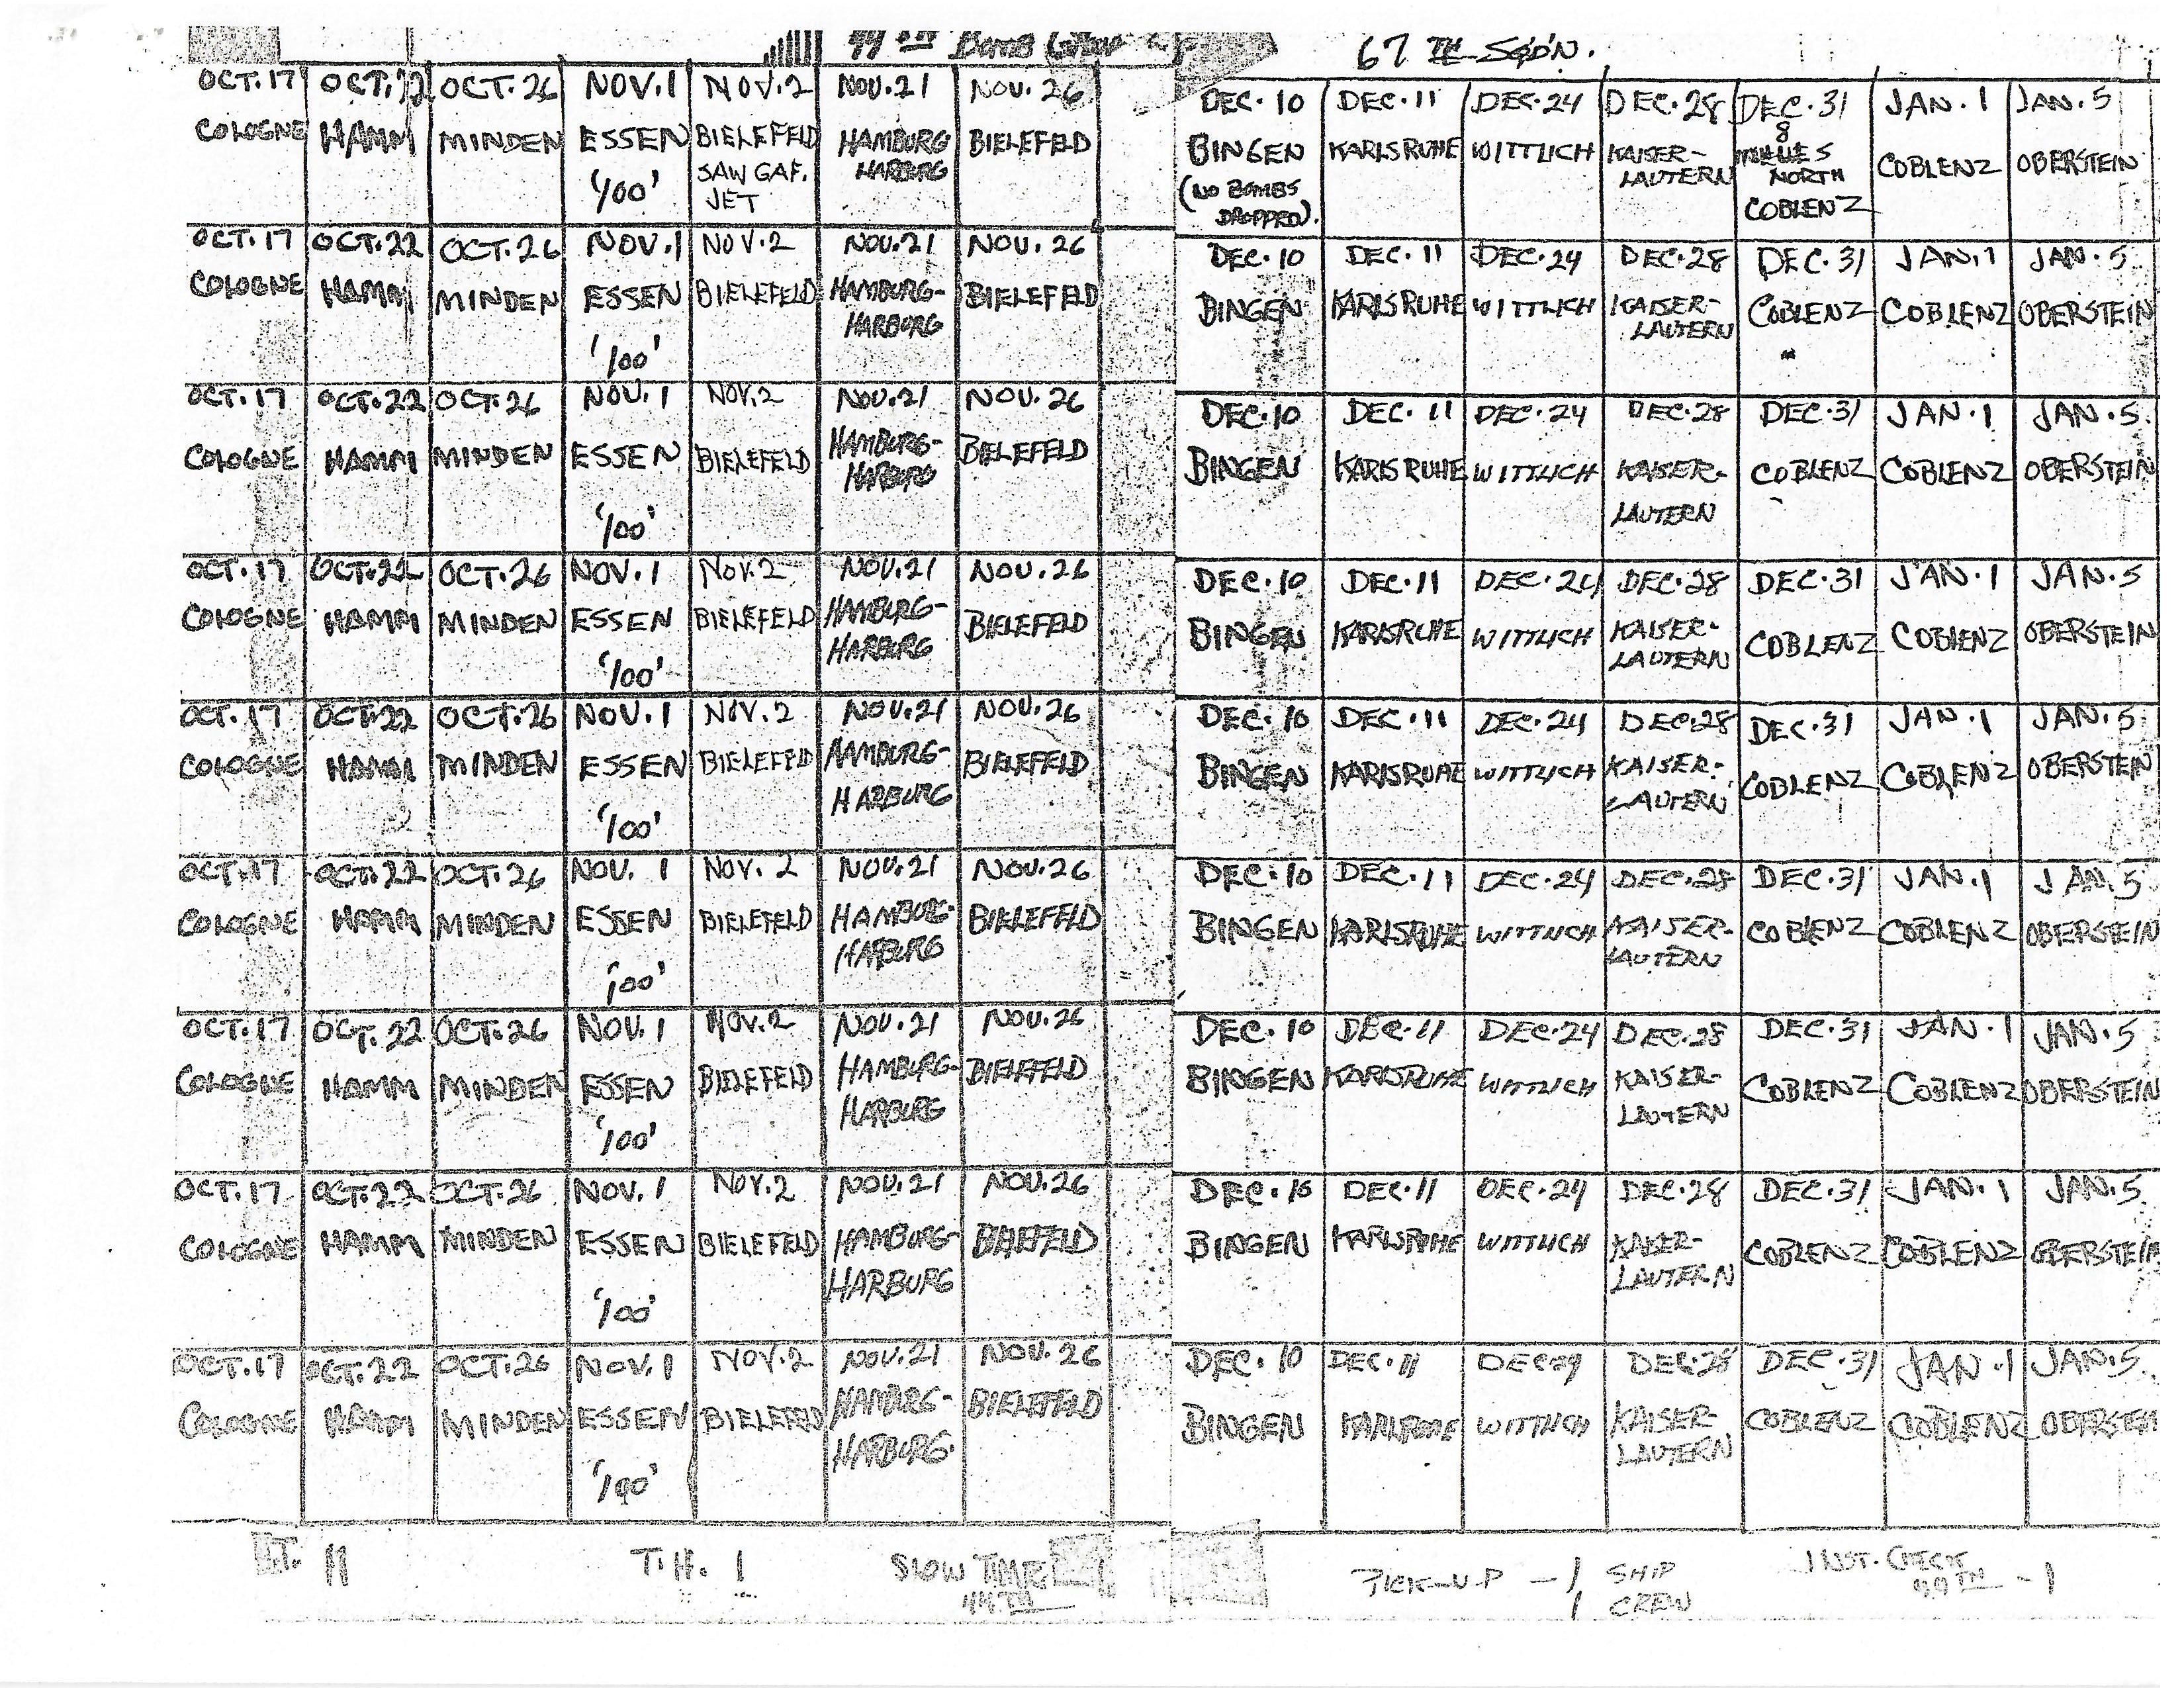 44TH BOMB GROUP 67TH SQD'N.
OCT. 17 OCT. 22 OCT. 26 NOV. 1 NOV. 2 NOV. 21 NOV. 26 DEC. 10 DEC. 11 DEC. 24 DEC. 28 DEC. 31 JAN. 1 JAN. 5
COLOGNE HAMM MINDEN ESSEN BIELEFELD HAMBURG BIELEFELD BINGEN KARLSRUHE WITTLICH KAISER- 8 MILES COBLENZ OBERSTEIN
'100' SAW GAF. HARBURG (NO BOMBS LAUTERN NORTH
JET DROPPED). COBLENZ
OCT. 17 OCT. 22 OCT. 26 NOV. 1 NOV. 2 NOV. 21 NOV. 26 DEC. 10 DEC. 11 DEC. 24 DEC. 28 DEC. 31 JAN. 1 JAN. 5
COLOGNE HAMM MINDEN ESSEN BIELEFELD HAMBURG- BIELEFELD BINGEN KARLSRUHE WITTLICH KAISER- COBLENZ COBLENZ OBERSTEIN
HARBURG LAUTERN
'100'
OCT. 17 OCT. 22 OCT. 26 NOV. 1 NOV. 2 NOV. 21 NOV. 26 DEC. 10 DEC. 11 DEC. 24 DEC. 28 DEC. 31 JAN. 1 JAN. 5
COLOGNE HAMM MINDEN ESSEN BIELEFELD HAMBURG- BIELEFELD BINGEN KARLSRUHE WITTLICH KAISER- COBLENZ COBLENZ OBERSTEIN
HARBURG LAUTERN
'100'
OCT. 17 OCT. 22 OCT. 26 NOV. 1 NOV. 2 NOV. 21 NOV. 26 DEC. 10 DEC. 11 DEC. 24 DEC. 28 DEC. 31 JAN. 1 JAN. 5
COLOGNE HAMM MINDEN ESSEN BIELEFELD HAMBURG- BIELEFELD BINGEN KARLSRUHE WITTLICH KAISER- COBLENZ COBLENZ OBERSTEIN
HARBURG LAUTERN
'100'
OCT. 17 OCT. 22 OCT. 26 NOV. 1 NOV. 2 NOV. 21 NOV. 26 DEC. 10 DEC. 11 DEC. 24 DEC. 28 DEC. 31 JAN. 1 JAN. 5
COLOGNE HAMM MINDEN ESSEN BIELEFELD HAMBURG- BIELEFELD BINGEN KARLSRUHE WITTLICH KAISER- COBLENZ COBLENZ OBERSTEIN
HARBURG LAUTERN
'100'
OCT. 17 OCT. 22 OCT. 26 NOV. 1 NOV. 2 NOV. 21 NOV. 26 DEC. 10 DEC. 11 DEC. 24 DEC. 28 DEC. 31 JAN. 1 JAN. 5
COLOGNE HAMM MINDEN ESSEN BIELEFELD HAMBURG- BIELEFELD BINGEN KARLSRUHE WITTLICH KAISER- COBLENZ COBLENZ OBERSTEIN
HARBURG LAUTERN
'100'
OCT. 17 OCT. 22 OCT. 26 NOV. 1 NOV. 2 NOV. 21 NOV. 26 DEC. 10 DEC. 11 DEC. 24 DEC. 28 DEC. 31 JAN. 1 JAN. 5
COLOGNE HAMM MINDEN ESSEN BIELEFELD HAMBURG- BIELEFELD BINGEN KARLSRUHE WITTLICH KAISER- COBLENZ COBLENZ OBERSTEIN
HARBURG LAUTERN
'100'
OCT. 17 OCT. 22 OCT. 26 NOV. 1 NOV. 2 NOV. 21 NOV. 26 DEC. 10 DEC. 11 DEC. 24 DEC. 28 DEC. 31 JAN. 1 JAN. 5
COLOGNE HAMM MINDEN ESSEN BIELEFELD HAMBURG- BIELEFELD BINGEN KARLSRUHE WITTLICH KAISER- COBLENZ COBLENZ OBERSTEIN
HARBURG LAUTERN
'100'
OCT. 17 OCT. 22 OCT. 26 NOV. 1 NOV. 2 NOV. 21 NOV. 26 DEC. 10 DEC. 11 DEC 24 DEC. 28 DEC. 31 JAN. 1 JAN. 5
COLOGNE HAMM MINDEN ESSEN BIELEFELD HAMBURG- BIELEFELD BINGEN KARLSRUHE WITTLICH KAISER- COBLENZ COBLENZ OBERSTEIN
HARBURG. LAUTERN
'100'
11 T.H. 1 SLOW TIME 1 PICK-UP - 1 SHIP INST. CHECK
44TH 1 CREW 44TH - 1